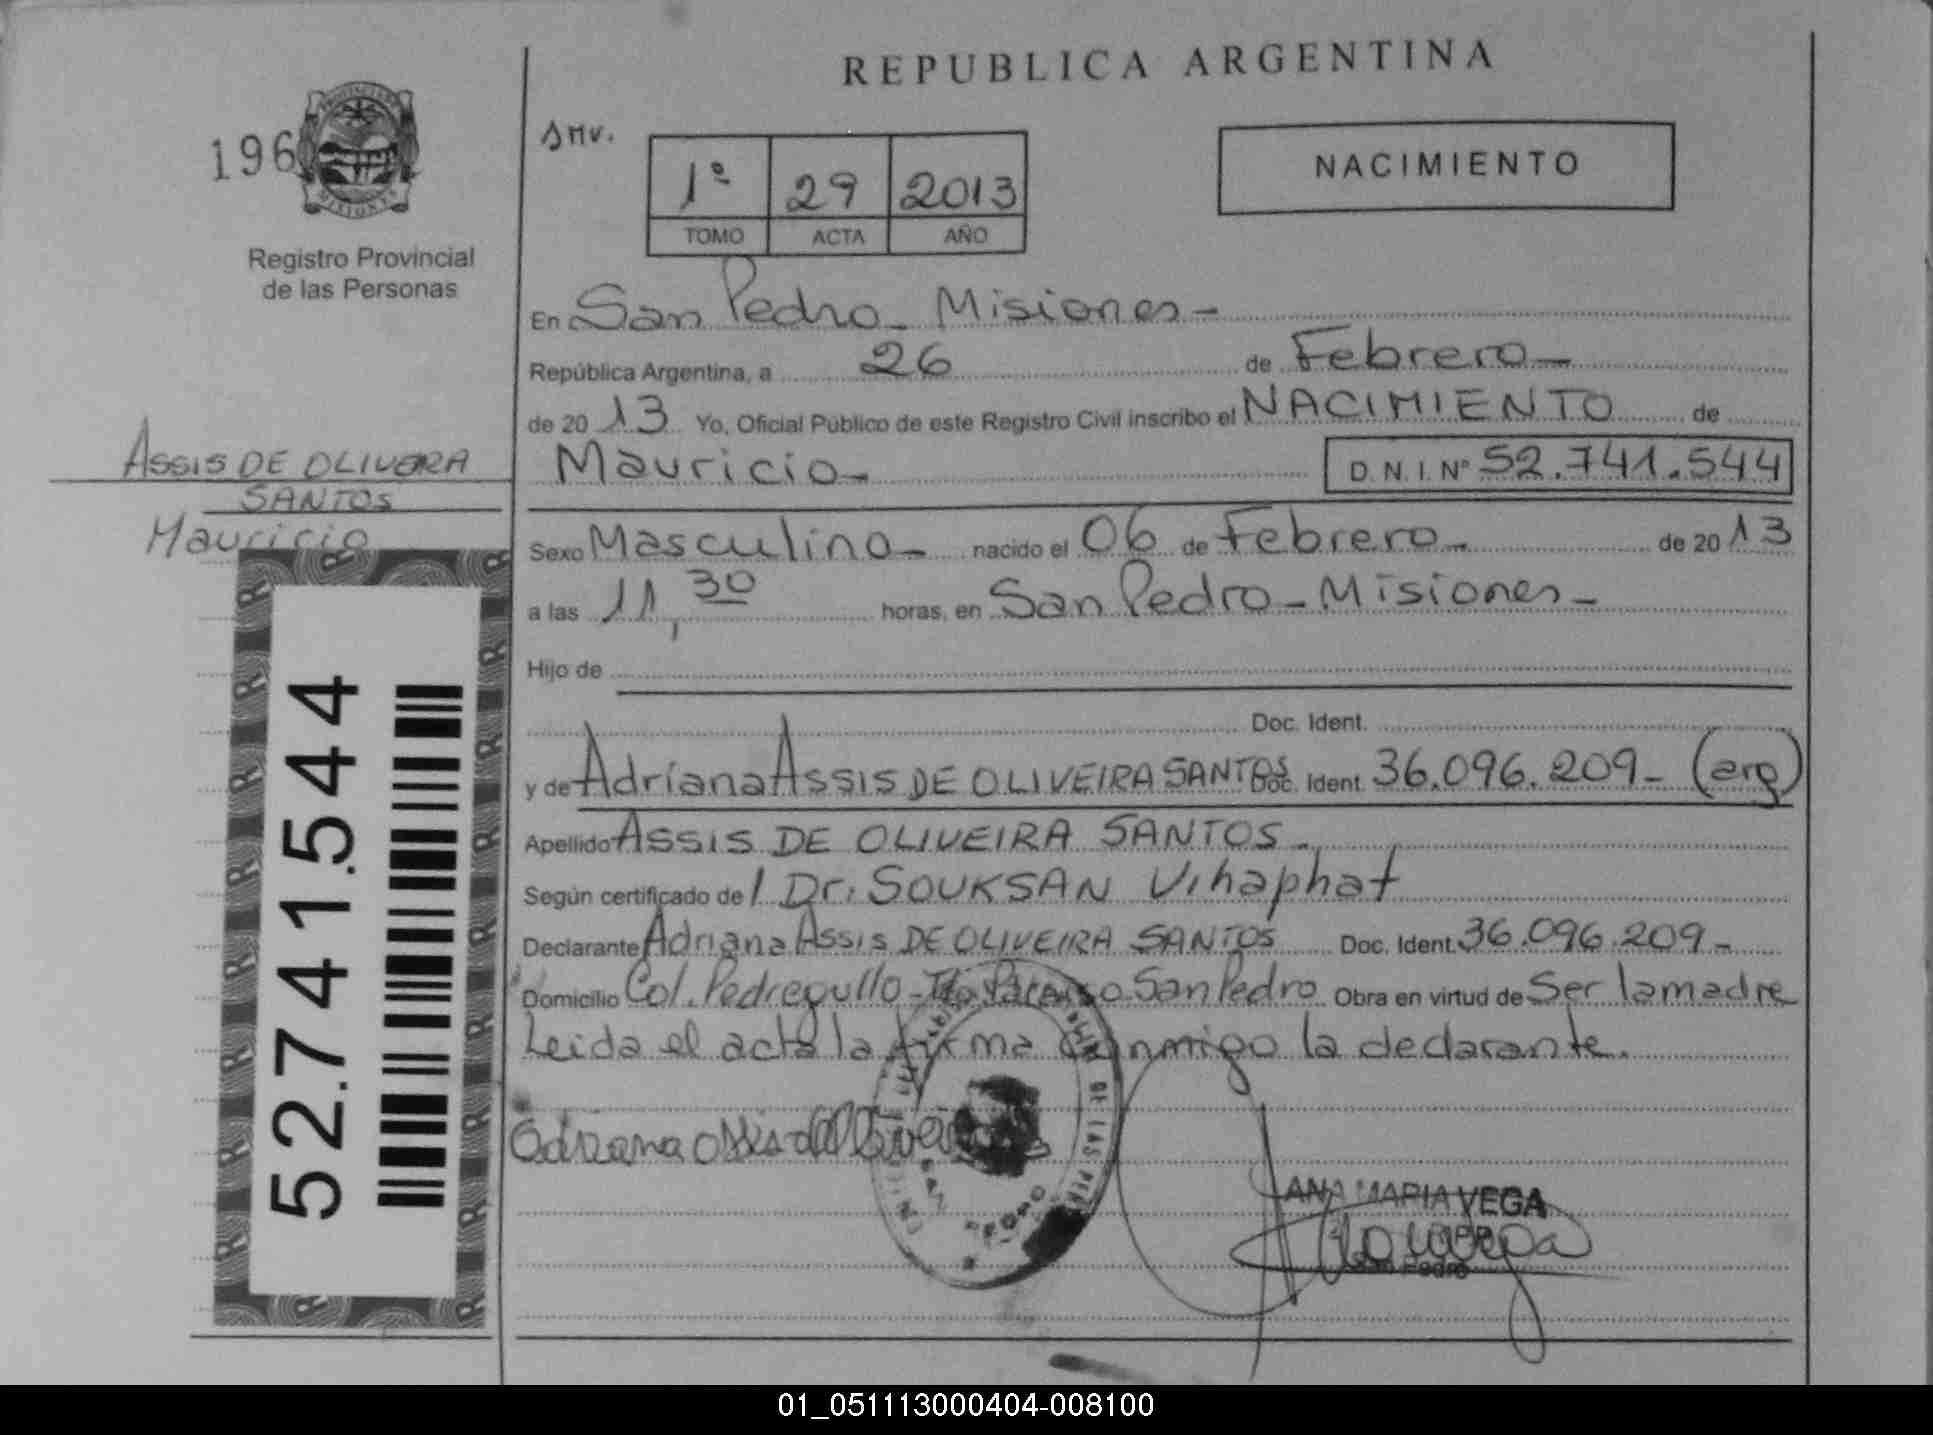 REPUBLICA ARGENTINA
196
PROVINCIA DE
MISIONES
Registro Provincial
de las Personas
SMV.
1º 29 2013
TOMO ACTA AÑO
NACIMIENTO
En San Pedro - Misiones -
República Argentina, a 26 de Febrero -
de 20 13 Yo, Oficial Público de este Registro Civil inscribo el NACIMIENTO de
Mauricio - D.N.I. Nº 52.741.544
ASSIS DE OLIVERA
SANTOS
Mauricio
Sexo Masculino - nacido el 06 de Febrero - de 20 13
a las 11,30 horas, en San Pedro - Misiones -
Hijo de
Doc. Ident.
y de Adriana ASSIS DE OLIVEIRA SANTOS Doc. Ident. 36.096.209 - (arg)
Apellido ASSIS DE OLIVEIRA SANTOS -
Según certificado de Dr. SOUKSAN Vihaphat
Declarante Adriana ASSIS DE OLIVEIRA SANTOS Doc. Ident. 36.096.209 -
Domicilio Col. Pedregullo - San Pedro Obra en virtud de Ser la madre
Leida el acta la firma conmigo la declarante.
52.741.544
DE LAS
SAN PEDRO
ANA MARIA VEGA
San Pedro
01_051113000404-008100